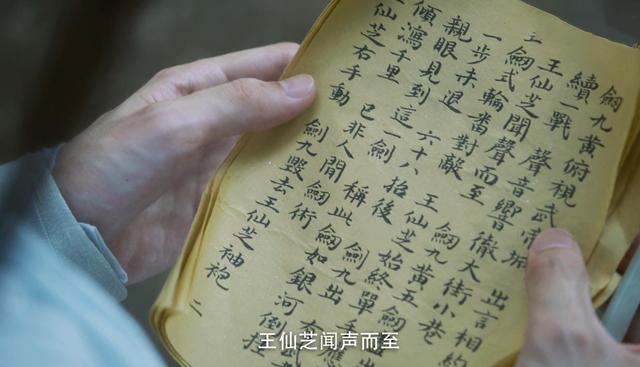 劍九黃俯視武帝城 出言相約
續一戰 聲音響徹大街小巷
王仙芝聞聲而至 劍九黃五劍盡出
劍式輪番對敵 王仙芝始終單手應
一步未退 六十八招後 劍九出
親眼見到這一劍 稱此劍如銀河倒挂
傾瀉千里 已非人間劍術
仙芝右手動 劍九毀去王仙芝袖袍 二
王仙芝闻声而至